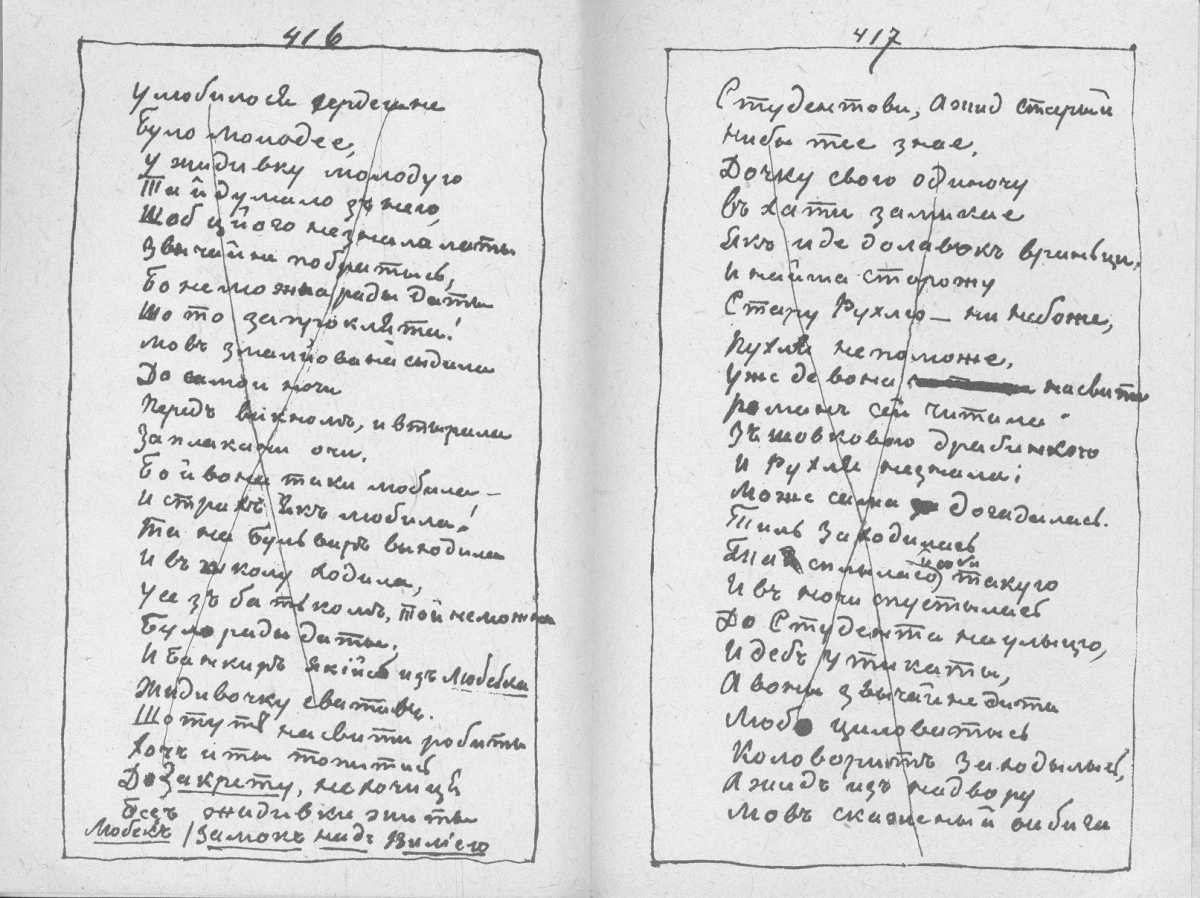 416
Улюбилося сердешне
Було молодее,
у жидивку молодую
Та й думало зъ нею,
Щоб ційого незнала маты
Звычайни побратысь,
Бо неможна рады даты
Що то за прокляти!
мовъ змалйована сыдила
До самои ночи
Передъ викномъ, и втырала
Заплакани очи.
Бо й вона таки любила —
И страхъ якъ любила!
Та на Бульваръ выходила
И въ школу ходила,
Усе зъ батькомъ, той неможна
Було рады даты.
И банкиръ якійсь изъ Любебка
Жидивочку сватавъ.
Що тутъ на свити робыты
Хочъ иты топитысь
До Закрету, нехочицьця
Безъ жидивки жыты
Любекъ / Замокъ надъ Вилією
417
Студентови, а жид старый
ниби тее знае,
Дочку свою одиночу
въ хати замикае
Якъ иде до лавокъ враньци,
И найма сторожу
Стару Рухлю — ни небоже,
Рухля непоможе.
Уже де вона на свити
романъ сей читала
Зъ шовковою драбинкою
И Рухля незнала;
Може сама догадилась.
Тиль заходилась
Та й сплила собі такую
И въ ночи спустылась
До Студента на улыцю,
И дебъ утикаты,
А воны звычайне диты
Любо циловатысь
Коловоритъ заходылысь,
А жидъ изъ надвору
мовъ скаженый вибига